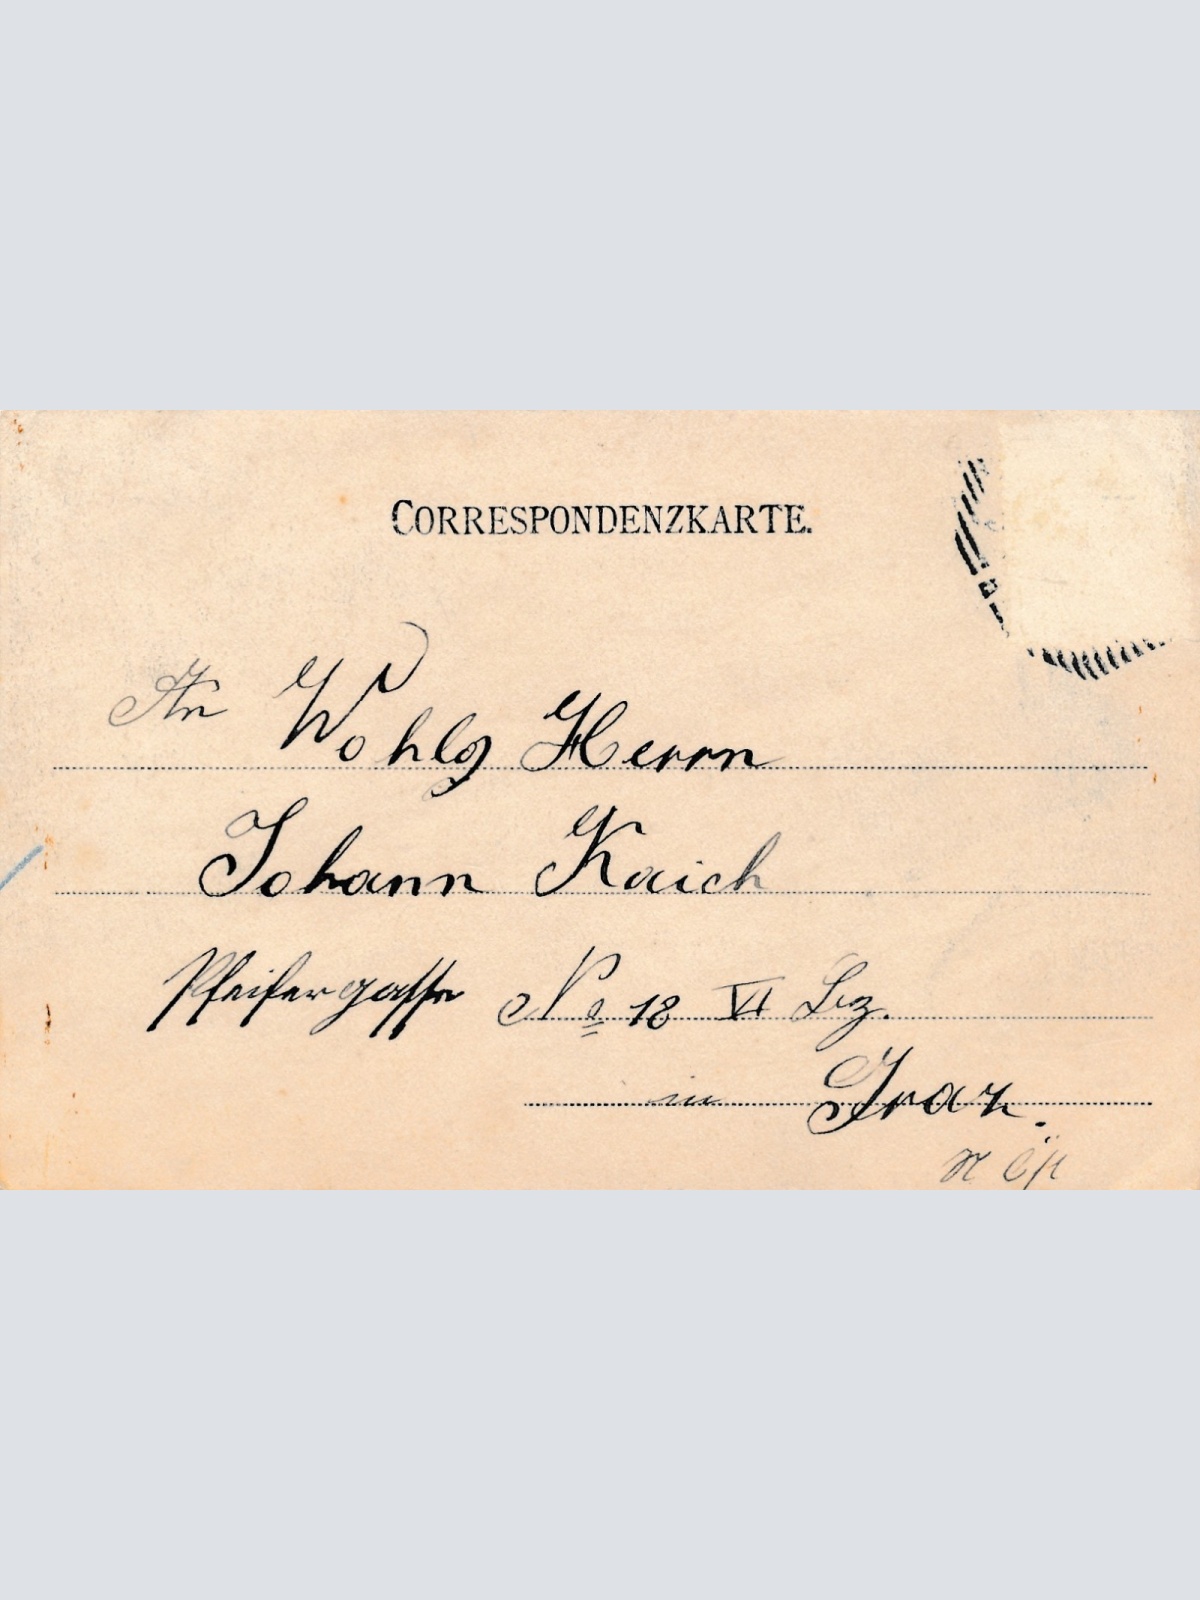 CORRESPONDENZKARTE.
An Wohlg Herrn
Johann Kaich
Pfeifergasse No 18 VI Bz.
in Graz.